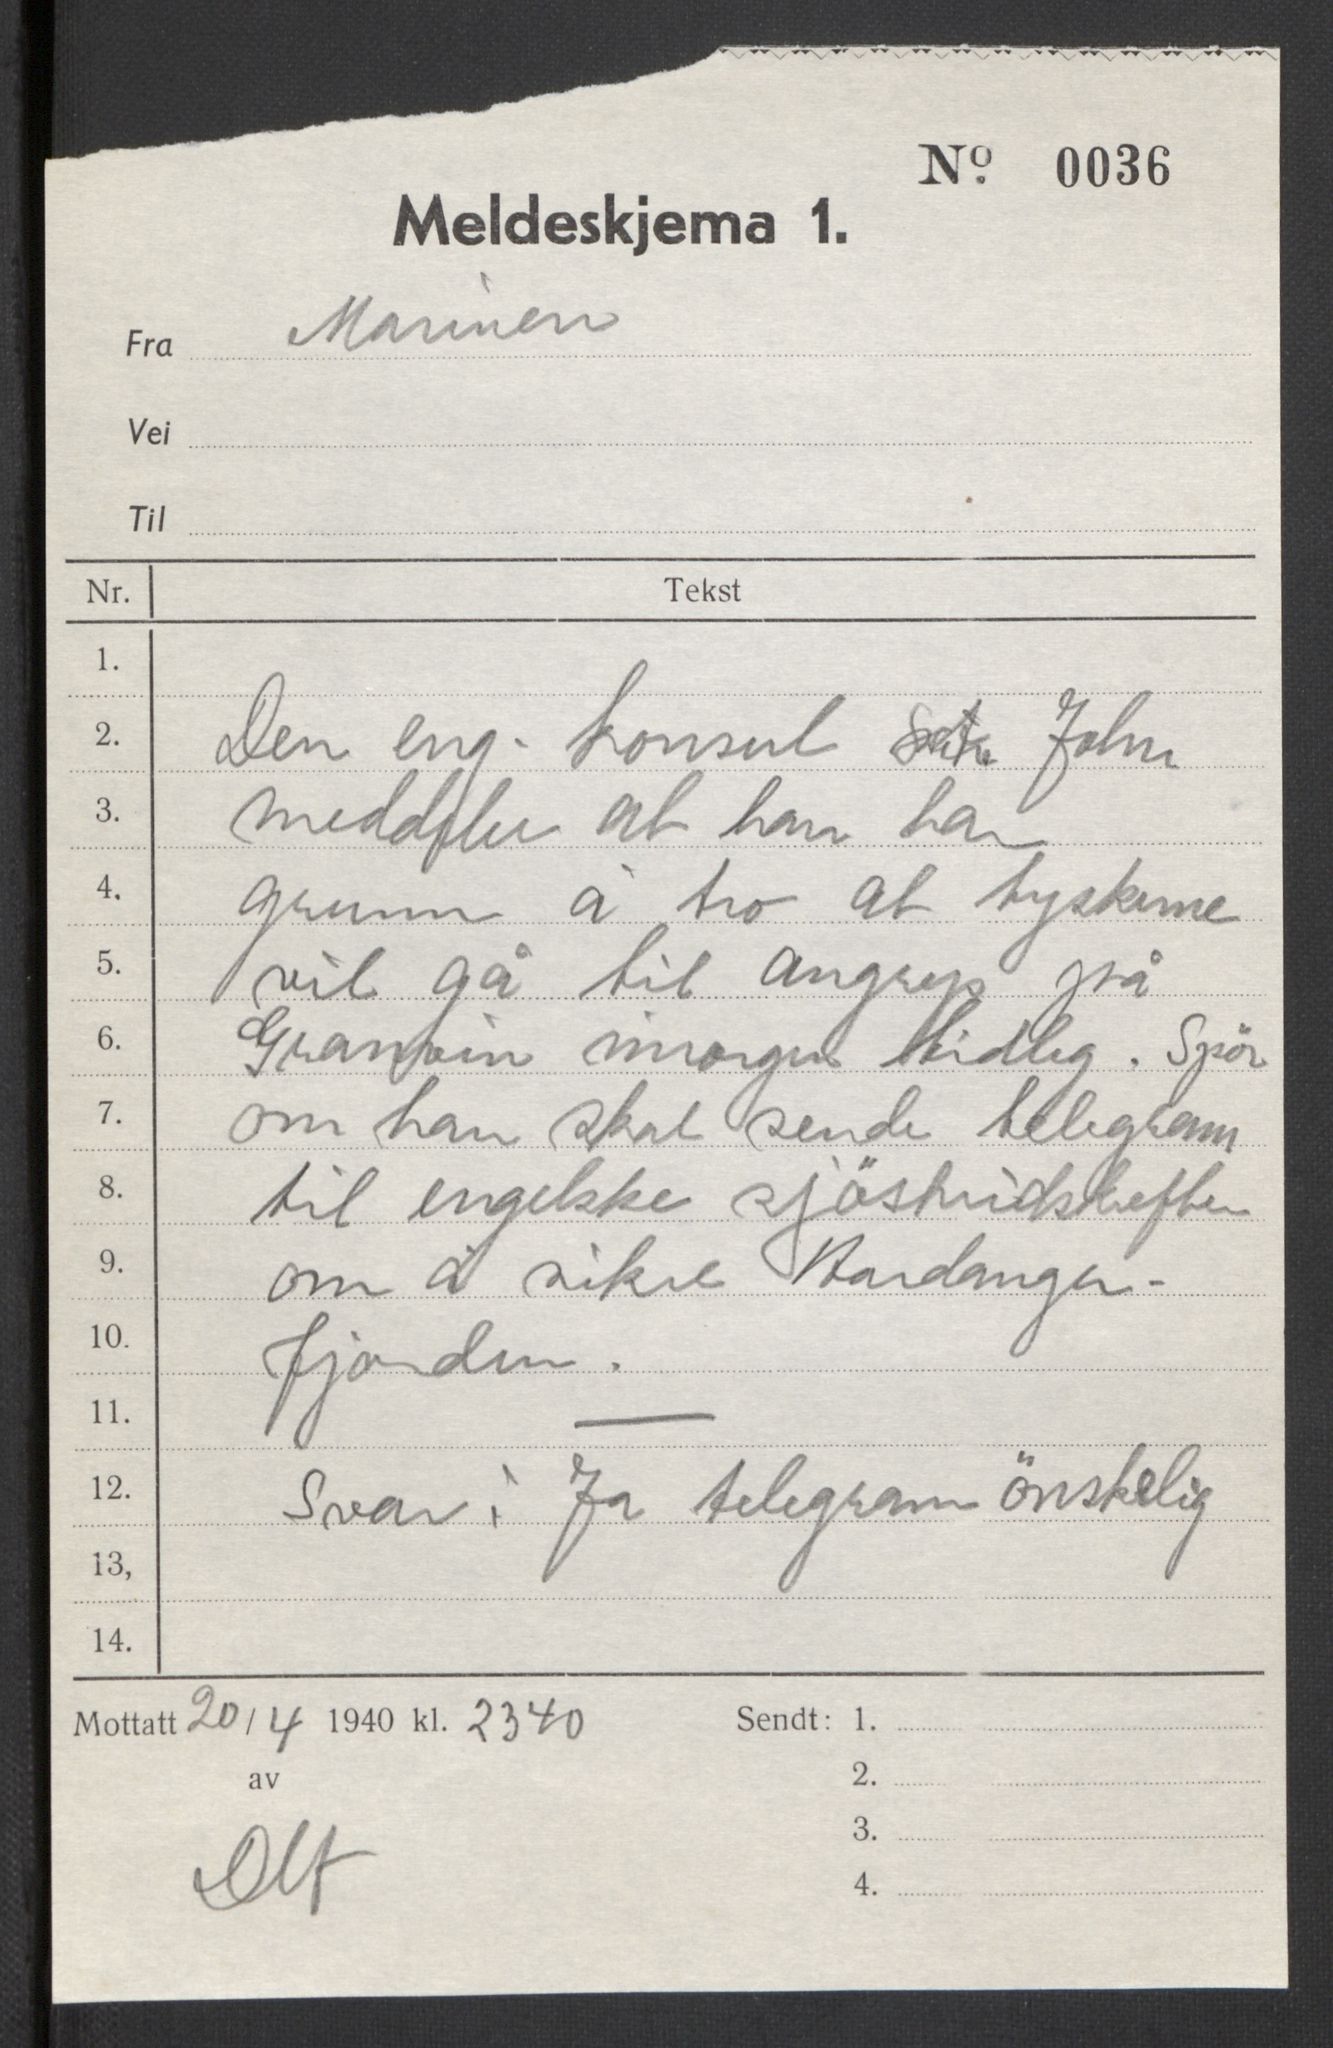 Nº 0036
Meldeskjema 1.
Fra Marinen
Vei
Til
Nr. Tekst
1.
2. Den eng. konsul John
3. meddeler at han har
4. grunn å tro at tyskerne
5. vil gå til angrep på
6. Granvin imorgen tidleg. Spör
7. om han skal sende telegram
8. til engelske sjöstridskrefter
9. om å sikre Hardanger-
10. fjorden.
11.
12. Svar: Ja telegram önskelig
13,
14.
Mottatt 20/4 1940 kl. 2340 Sendt: 1.
av 2.
3.
4.